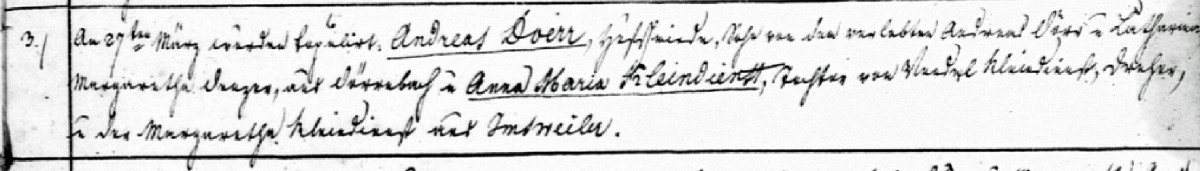 3./ Am 27ten März wurden kopulirt: Andreas Doerr, Hufschmiede, Sohn von den verlebten Andreas Dörr u Catharina
Margaretha Denger, aus Dörrenbach u Anna Maria Kleindienst, Tochter von Wendel Kleindienst, Dreher,
u der Margaretha Kleindienst aus Imsweiler.